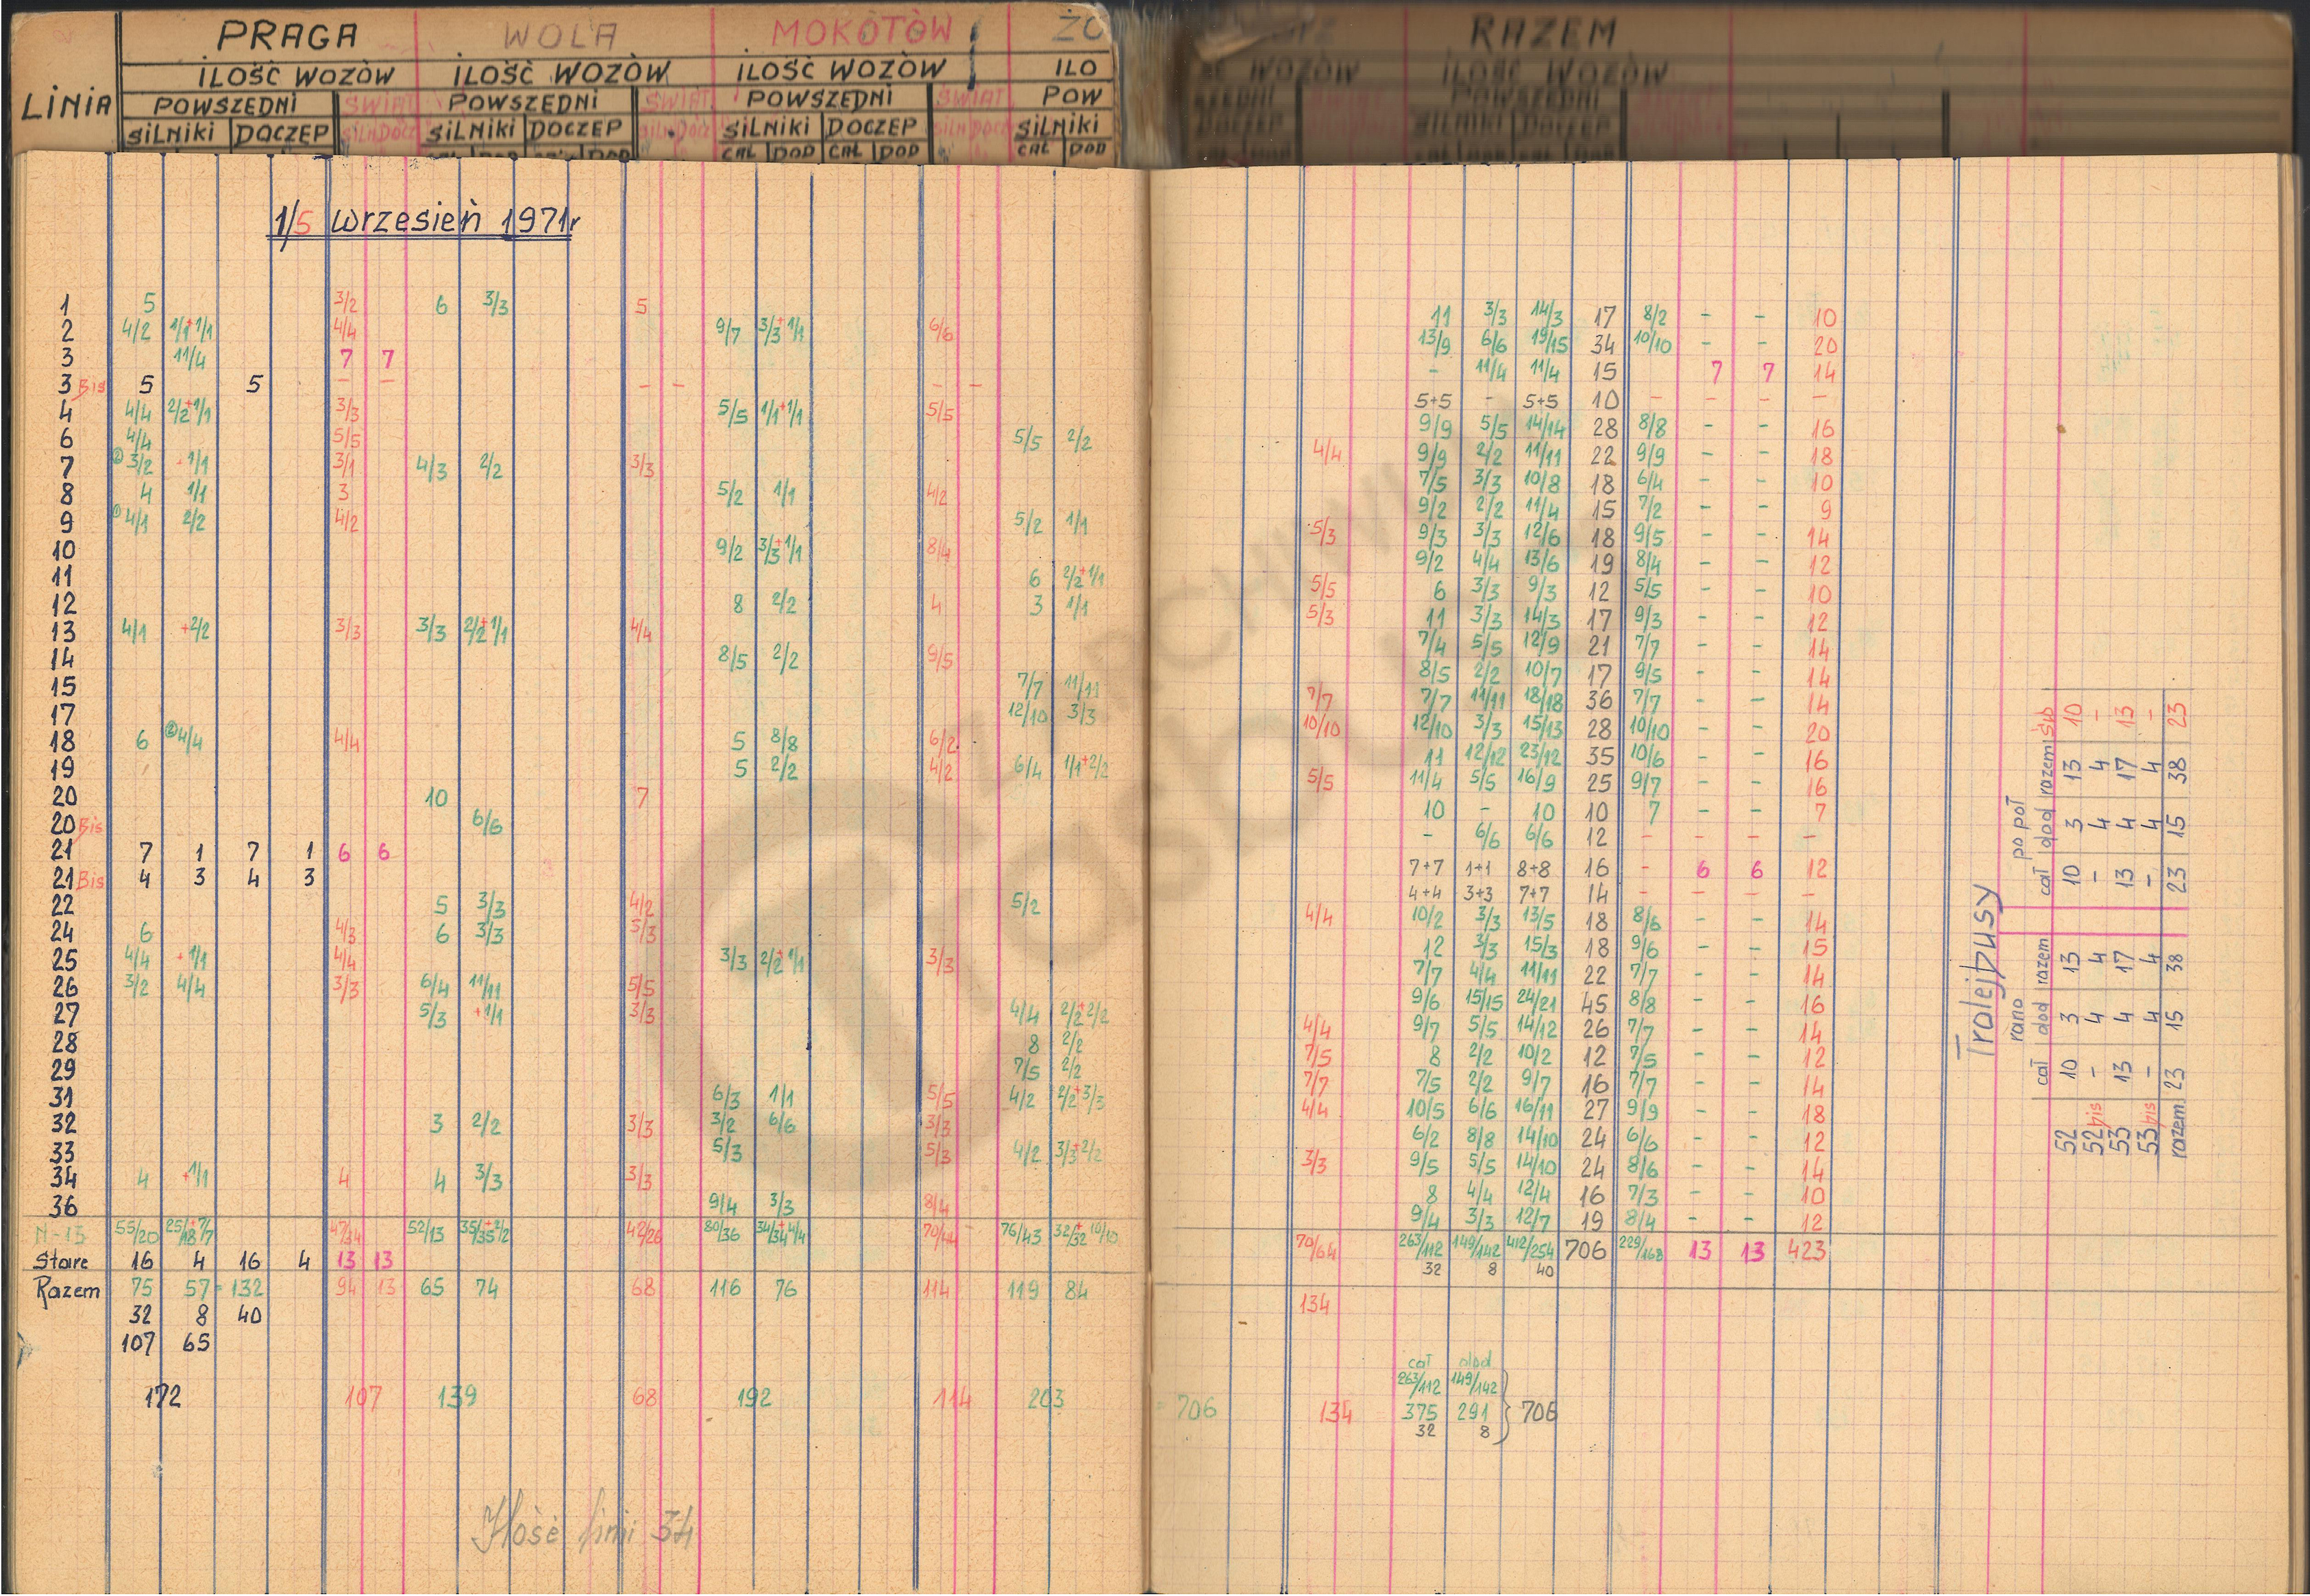 PRAGA WOLA MOKOTÓW ŻO RAZEM
ILOŚĆ WOZÓW ILOŚĆ WOZÓW ILOŚĆ WOZÓW ILO WOZÓW ILOŚĆ WOZÓW
LINIA POWSZEDNI ŚWIĄT POWSZEDNI ŚWIĄT POWSZEDNI ŚWIĄT POW POWSZEDNI
SILNIKI DOCZEP SILN DOCZ SILNIKI DOCZEP SILN DOCZ SILNIKI DOCZEP SILN DOCZ SILNIKI DOCZEP SILNIKI DOCZEP
CAŁ DOD CAŁ DOD CAŁ DOD
1/5 wrzesień 1971r
1 5 3/2 6 3/3 5 11 3/3 14/3 17 8/2 - - 10
2 4/2 1/1+1/1 4/4 9/7 3/3+1/1 6/6 13/9 6/6 19/15 34 10/10 - - 20
3 11/4 7 7 - 11/4 11/4 15 7 7 14
3 Bis 5 5 - - - - - - 5+5 - 5+5 10 - - - -
4 4/4 2/2+1/1 3/3 5/5 1/1+1/1 5/5 9/9 5/5 14/14 28 8/8 - - 16
6 4/4 5/5 5/5 2/2 4/4 9/9 2/2 11/11 22 9/9 - - 18
7 ② 3/2 +1/1 3/1 4/3 2/2 3/3 7/5 3/3 10/8 18 6/4 - - 10
8 4 1/1 3 5/2 1/1 4/2 9/2 2/2 11/4 15 7/2 - - 9
9 ① 4/1 2/2 4/2 5/2 1/1 5/3 9/3 3/3 12/6 18 9/5 - - 14
10 9/2 3/3+1/1 8/4 9/2 4/4 13/6 19 8/4 - - 12
11 6 2/2+1/1 5/5 6 3/3 9/3 12 5/5 - - 10
12 8 2/2 4 3 1/1 5/3 11 3/3 14/3 17 9/3 - - 12
13 4/1 +2/2 3/3 3/3 2/2+1/1 4/4 7/4 5/5 12/9 21 7/7 - - 14
14 8/5 2/2 9/5 8/5 2/2 10/7 17 9/5 - - 14
15 7/7 11/11 7/7 7/7 11/11 18/18 36 7/7 - - 14
17 12/10 3/3 10/10 12/10 3/3 15/13 28 10/10 - - 20
18 6 ② 4/4 4/4 5 8/8 6/2 11 12/12 23/12 35 10/6 - - 16
19 5 2/2 4/2 6/4 1/1+2/2 5/5 11/4 5/5 16/9 25 9/7 - - 16
20 10 7 10 - 10 10 7 - - 7
20 Bis 6/6 - 6/6 6/6 12 - - - -
21 7 1 7 1 6 6 7+7 1+1 8+8 16 - 6 6 12
21 Bis 4 3 4 3 4+4 3+3 7+7 14 - - - -
22 5 3/3 4/2 5/2 4/4 10/2 3/3 13/5 18 8/6 - - 14
24 6 4/3 6 3/3 5/3 12 3/3 15/3 18 9/6 - - 15
25 4/4 +1/1 4/4 3/3 2/2+1/1 3/3 7/7 4/4 11/11 22 7/7 - - 14
26 3/2 4/4 3/3 6/4 11/11 5/5 9/6 15/15 24/21 45 8/8 - - 16
27 5/3 +1/1 3/3 4/4 2/2+2/2 4/4 9/7 5/5 14/12 26 7/7 - - 14
28 8 2/2 7/5 8 2/2 10/2 12 7/5 - - 12
29 7/5 2/2 7/7 7/5 2/2 9/7 16 7/7 - - 14
31 6/3 1/1 5/5 4/2 2/2+3/3 4/4 10/5 6/6 16/11 27 9/9 - - 18
32 3 2/2 3/3 3/2 6/6 3/3 6/2 8/8 14/10 24 6/6 - - 12
33 5/3 5/3 4/2 3/3+2/2 3/3 9/5 5/5 14/10 24 8/6 - - 14
34 4 +1/1 4 4 3/3 3/3 8 4/4 12/4 16 7/3 - - 10
36 9/4 3/3 8/4 9/4 3/3 12/7 19 8/4 - - 12
N-13 55/20 25/18+7/7 47/34 52/13 35/35+2/2 42/26 80/36 34/34+4/4 70/44 76/43 32/32+10/10 70/64 263/112 149/142 412/254 706 229/168 13 13 423
Stare 16 4 16 4 13 13 32 8 40
Razem 75 57 = 132 94 13 65 74 68 116 76 114 119 84 134
32 8 40
107 65
cał dod
263/112 149/142
172 107 139 68 192 114 203 706 134 375 291 } 706
32 8
Ilość linii 34
Trolejbusy
rano po poł
cał dod razem cał dod razem św
52 10 3 13 10 3 13 10
52 bis - 4 4 - 4 4 -
53 13 4 17 13 4 17 13
53 bis - 4 4 - 4 4 -
razem 23 15 38 23 15 38 23